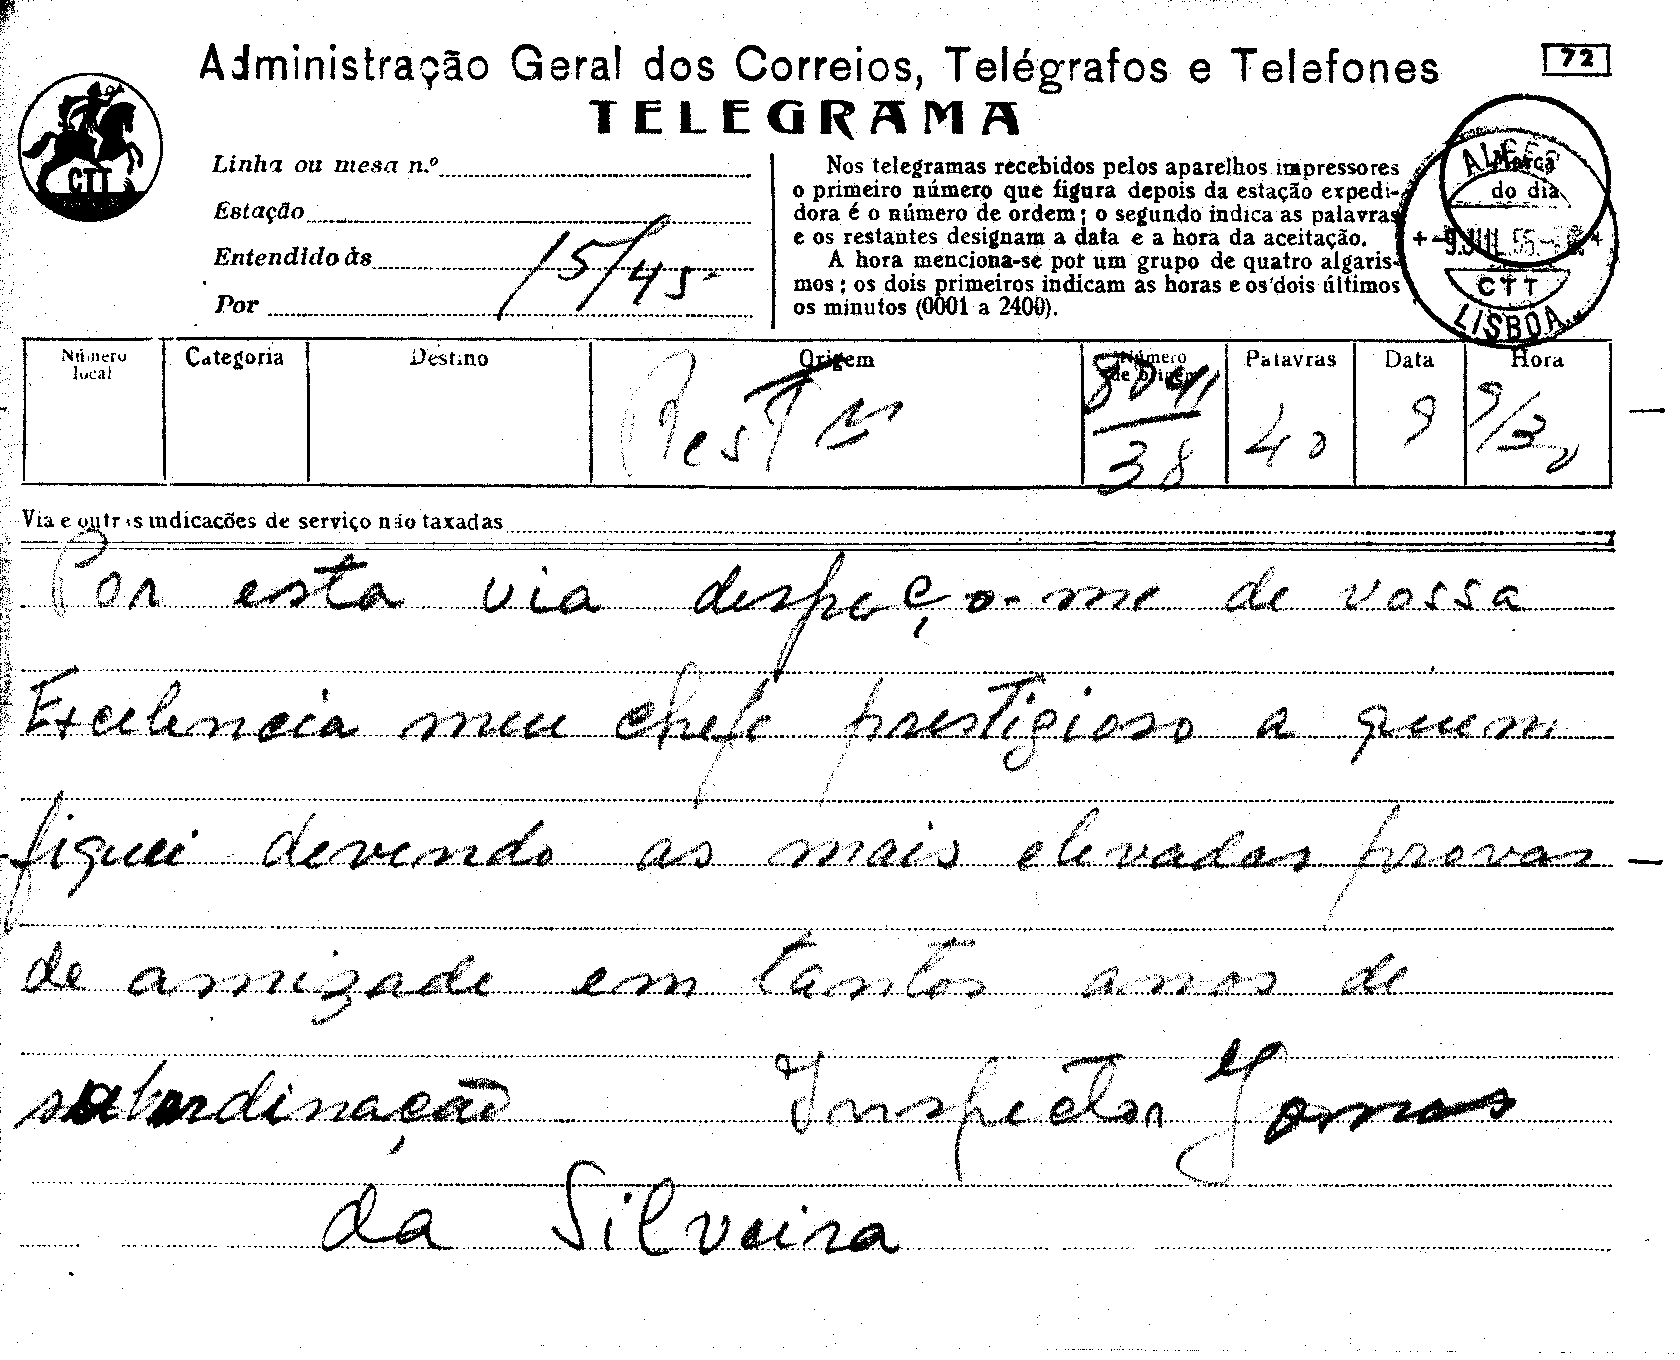 Administração Geral dos Correios, Telégrafos e Telefones
72
TELEGRAMA
CTT
Linha ou mesa n.º
Estação
Entendido às 15/45
Por
Nos telegramas recebidos pelos aparelhos impressores
o primeiro número que figura depois da estação expedi-
dora é o número de ordem; o segundo indica as palavras
e os restantes designam a data e a hora da aceitação.
A hora menciona-se por um grupo de quatro algaris-
mos; os dois primeiros indicam as horas e os dois últimos
os minutos (0001 a 2400).
Marca
do dia
CTT
LISBOA
Número local
Categoria
Destino
Origem
Número de origem
Palavras
Data
Hora
8041
38
40
9
9/30
Via e outras indicacões de serviço não taxadas
Por esta via despeço-me de vossa
Excelencia meu chefe prestigioso a quem
fiquei devendo as mais elevadas provas
de amizade em tantos anos de
subordinação Inspector
da Silveira